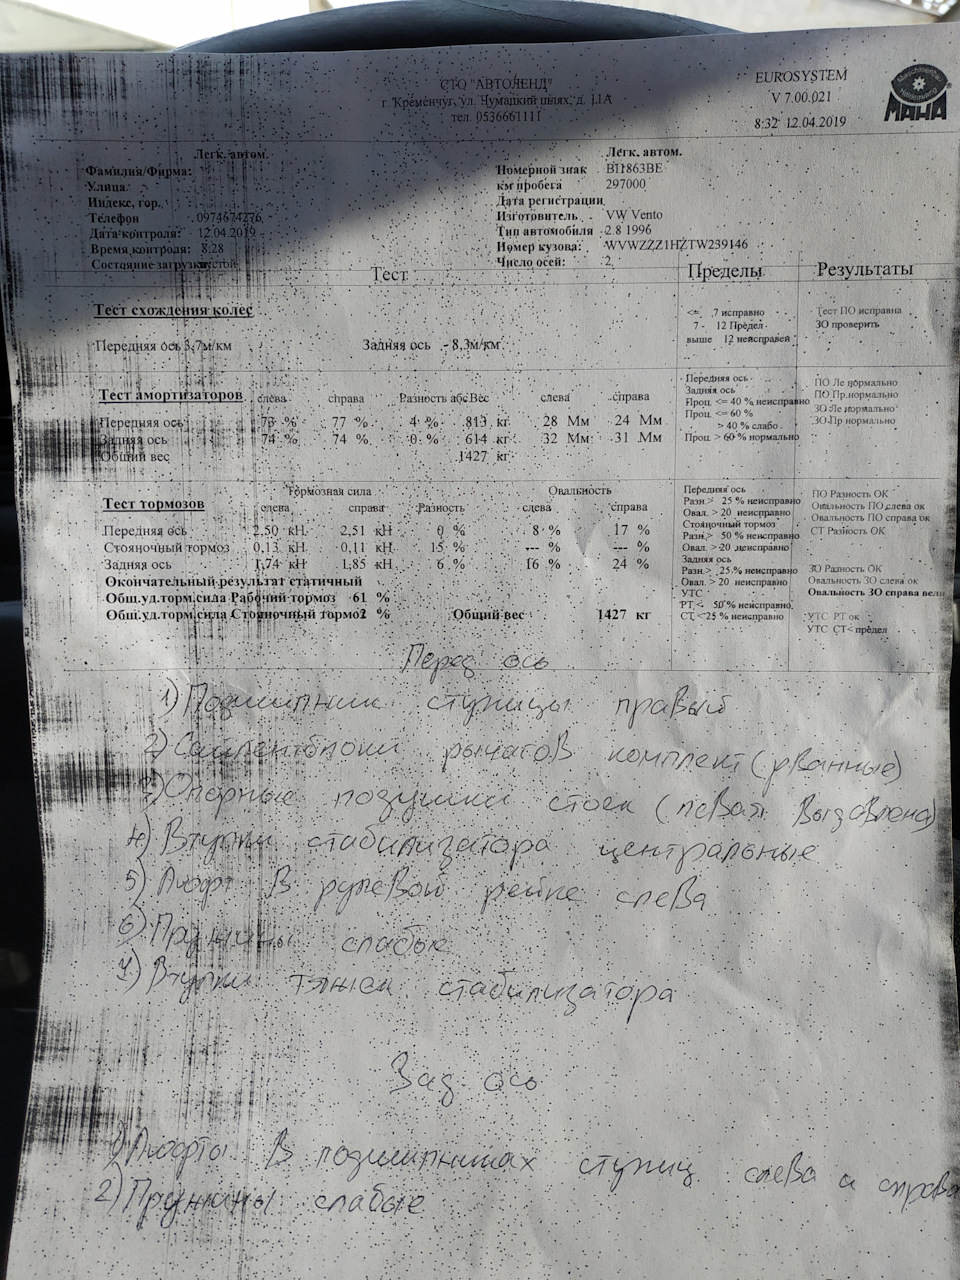 СТО "АВТОЛЕНД"
г. Кременчуг, ул. Чумацкий шлях, д. 11А
тел. 0536661111
EUROSYSTEM
V 7.00.021
8:32 12.04.2019
Maschinenbau Haldenwang
МАНА
Легк. автом.
Фамилия/Фирма:
Улица
Индекс, гор.
Телефон 0974674276
Дата контроля: 12.04.2019
Время контроля: 8:28
Состояние загрузки: пустой
Легк. автом.
Номерной знак BI1863BE
км пробега 297000
Дата регистрации
Изготовитель VW Vento
Тип автомобиля 2.8 1996
Номер кузова: WVWZZZ1HZTW239146
Число осей: 2
Тест Пределы Результаты
Тест схождения колес
Передняя ось 3,7м/км Задняя ось - 8,3м/км
<= 7 исправно
7 - 12 Предел
выше 12 неисправей
Тест ПО исправна
ЗО проверить
Тест амортизаторов слева справа Разность абсВес слева справа
Передняя ось 73 % 77 % 4 % 813 кг 28 Мм 24 Мм
Задняя ось 74 % 74 % 0 % 614 кг 32 Мм 31 Мм
Общий вес 1427 кг
Передняя ось
Задняя ось
Проц. <= 40 % неисправно
Проц. <= 60 %
> 40 % слабо
Проц. > 60 % нормально
ПО Ле нормально
ПО Пр нормально
ЗО Ле нормально
ЗО Пр нормально
Тест тормозов Тормозная сила Овальность
слева справа Разность слева справа
Передняя ось 2,50 кН 2,51 кН 0 % 8 % 17 %
Стояночный тормоз 0,13 кН 0,11 кН 15 % --- % --- %
Задняя ось 1,74 кН 1,85 кН 6 % 16 % 24 %
Окончательный результат статичный
Общ.уд.торм.сила Рабочий тормоз 61 %
Общ.уд.торм.сила Стояночный тормоз 2 % Общий вес 1427 кг
Передняя ось
Разн.> 25 % неисправно
Овал. > 20 неисправно
Стояночный тормоз
Разн.> 50 % неисправно
Овал. > 20 неисправно
Задняя ось
Разн.> 25 % неисправно
Овал. > 20 неисправно
УТС
РТ < 50 % неисправно
СТ < 25 % неисправно
ПО Разность ОК
Овальность ПО слева ок
Овальность ПО справа ок
СТ Разность ОК
ЗО Разность ОК
Овальность ЗО слева ок
Овальность ЗО справа вели
УТС РТ ок
УТС СТ< предел
Перед ось
1) Подшипник ступицы правый
2) Сайлентблоки рычагов комплект (рванные)
3) Опорные подушки стоек (левая выдавлена)
4) Втулки стабилизатора центральные
5) Люфт в рулевой рейке слева
6) Пружины слабые
7) Втулки тяжек стабилизатора
Зад ось
1) Люфты в подшипниках ступиц слева и справа
2) Пружины слабые